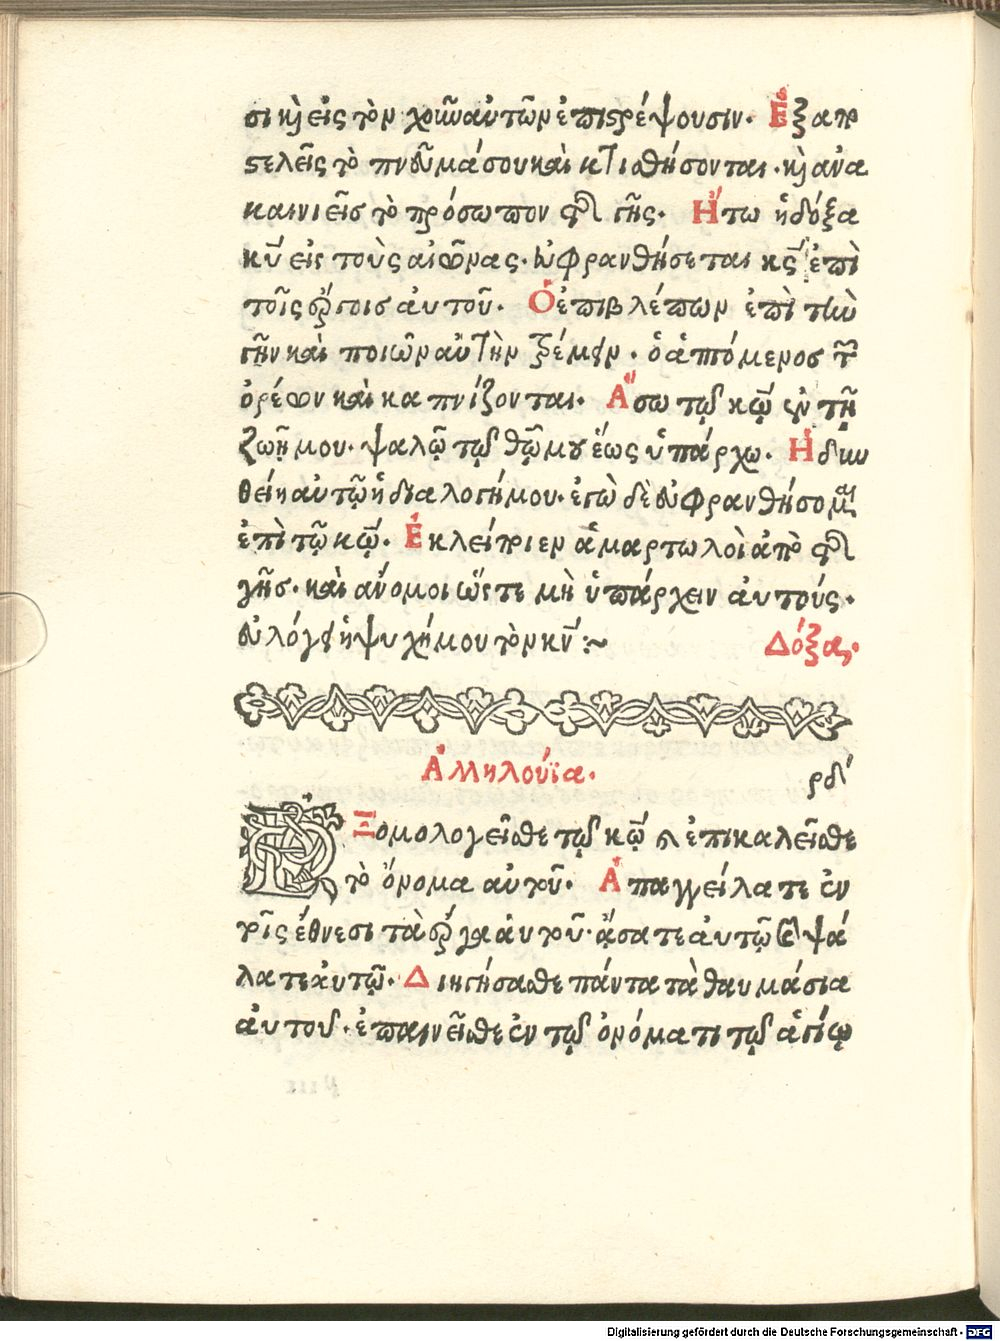 σι κ̀ εἰς τὸν χοῦν αὐτῶν ἐπιϛρέψουσιν. Ἐξαπο
ϛελεῖς τὸ πνεῦμά σου καὶ κτισθήσονται. κ̀ ἀνα
καινιεῖς τὸ πρόσωπον τῆς γῆς. Ἤτω ἡ δόξα
κυ̅ εἰς τοὺς αἰῶνας. εὐφρανθήσεται κς̅ ἐπὶ
τοῖς ἔργοις αὐτοῦ. Ὁ ἐπιβλέπων ἐπὶ τὴν
γῆν καὶ ποιῶν αὐτὴν τρέμειν. ὁ ἁπτόμενος τῶν
ὀρέων καὶ καπνίζονται. Ἄσω τῷ κω̅ ἐν τῇ
ζωῇ μου. ψαλῶ τῷ θω̅ μου ἕως ὑπάρχω. Ἡδυν
θείη αὐτῷ ἡ διαλογή μου. ἐγὼ δὲ εὐφρανθήσομαι
ἐπὶ τῷ κω̅. Ἐκλείποιεν ἁμαρτωλοὶ ἀπὸ τῆς
γῆς. καὶ ἄνομοι ὥϛτε μὴ ὑπάρχειν αὐτούς.
εὐλόγει ἡ ψυχή μου τὸν κν̅ :~ Δόξα.
Ἀλληλούϊα. ρδʹ
Ἐξομολογεῖσθε τῷ κω̅ κ̀ ἐπικαλεῖσθε
τὸ ὄνομα αὐτοῦ. Ἀπαγγείλατε ἐν
τοῖς ἔθνεσι τὰ ἔργα αὐτοῦ. ᾄσατε αὐτῷ κ̀ ψά
λατε αὐτῷ. Διηγήσασθε πάντα τὰ θαυμάσια
αὐτοῦ. ἐπαινεῖσθε ἐν τῷ ὀνόματι τῷ ἁγίῳ
Digitalisierung gefördert durch die Deutsche Forschungsgemeinschaft - DFG